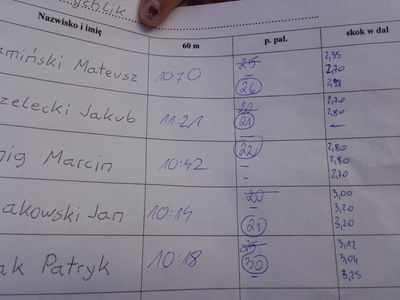 ychlik
Nazwisko i imię 60 m p. pal. skok w dal
amiński Mateusz 10:10 25 – 26 2,35 2,70 2,98
zelecki Jakub 11:21 20 21 – 2,70 2,80 –
nig Marcin 10:42 22 – – 2,80 2,80 2,70
akowski Jan 10:14 20 – 21 3,00 3,20 3,20
ak Patryk 10:18 25 30 – 3,12 3,04 3,25